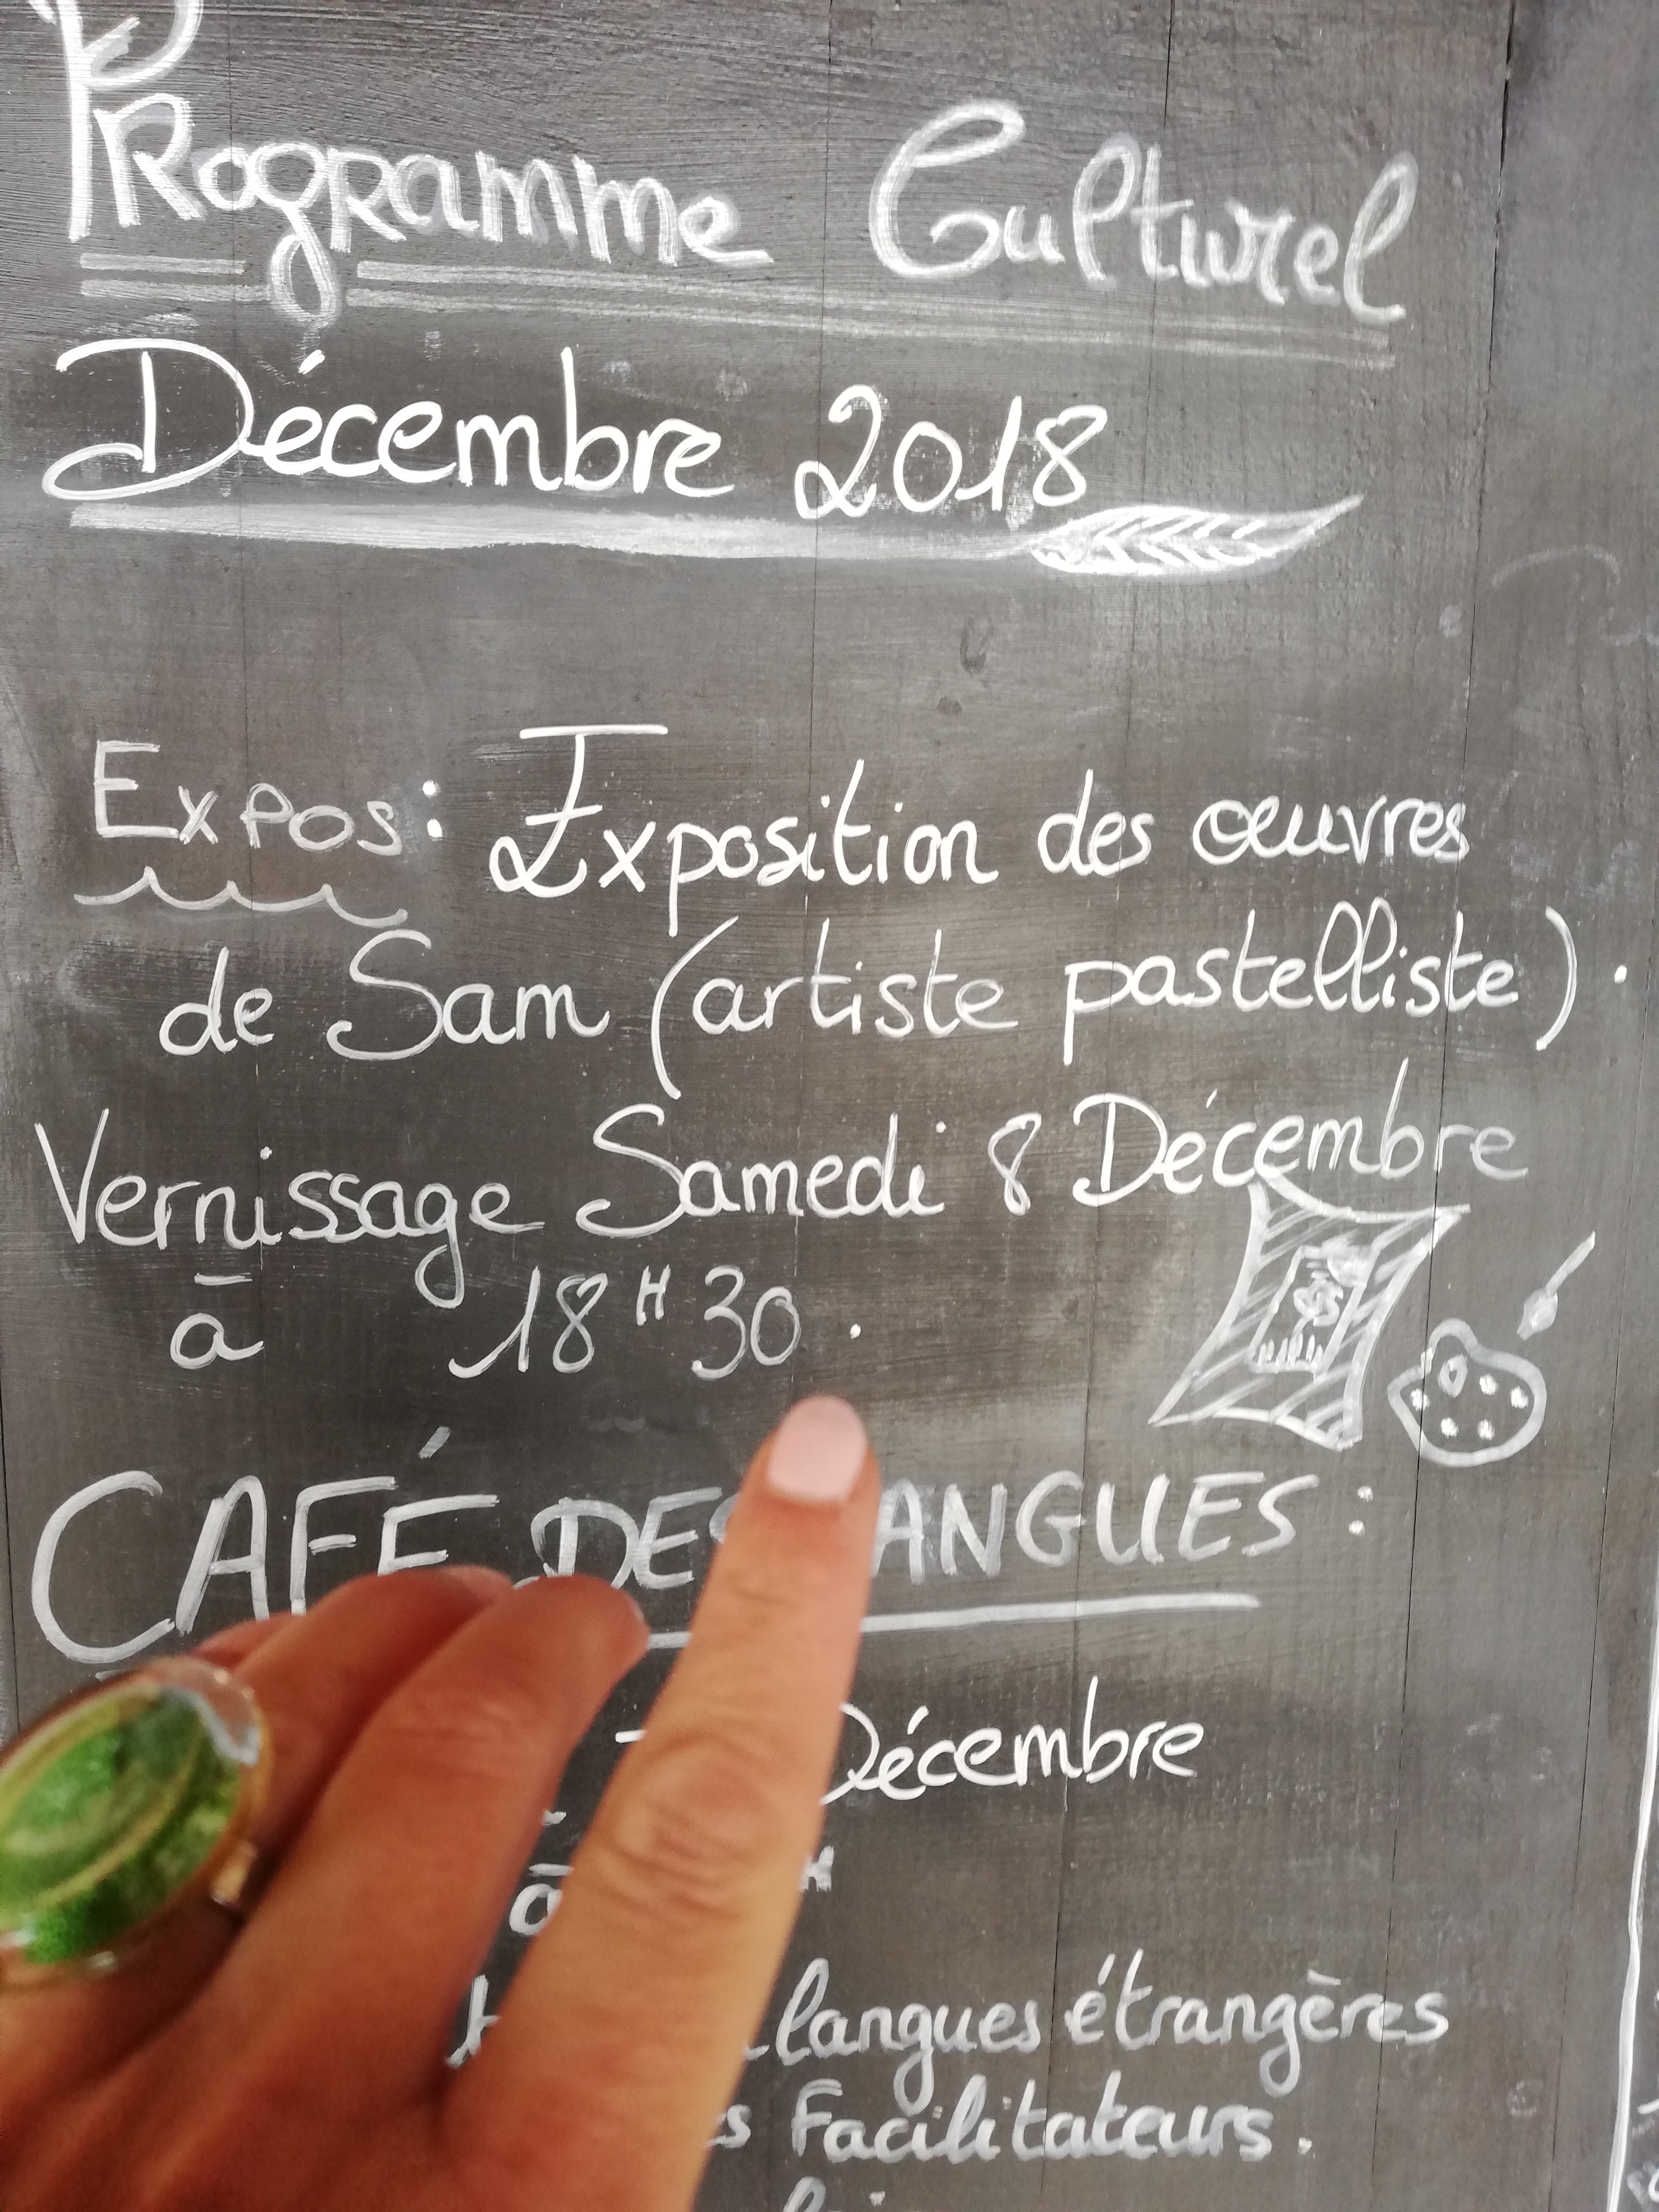 Programme Culturel
Décembre 2018
Expos: Exposition des œuvres
de Sam (artiste pastelliste).
Vernissage Samedi 8 Décembre
à 18H30.
CAFÉ DES LANGUES:
Décembre
à H
langues étrangères
Facilitateurs.